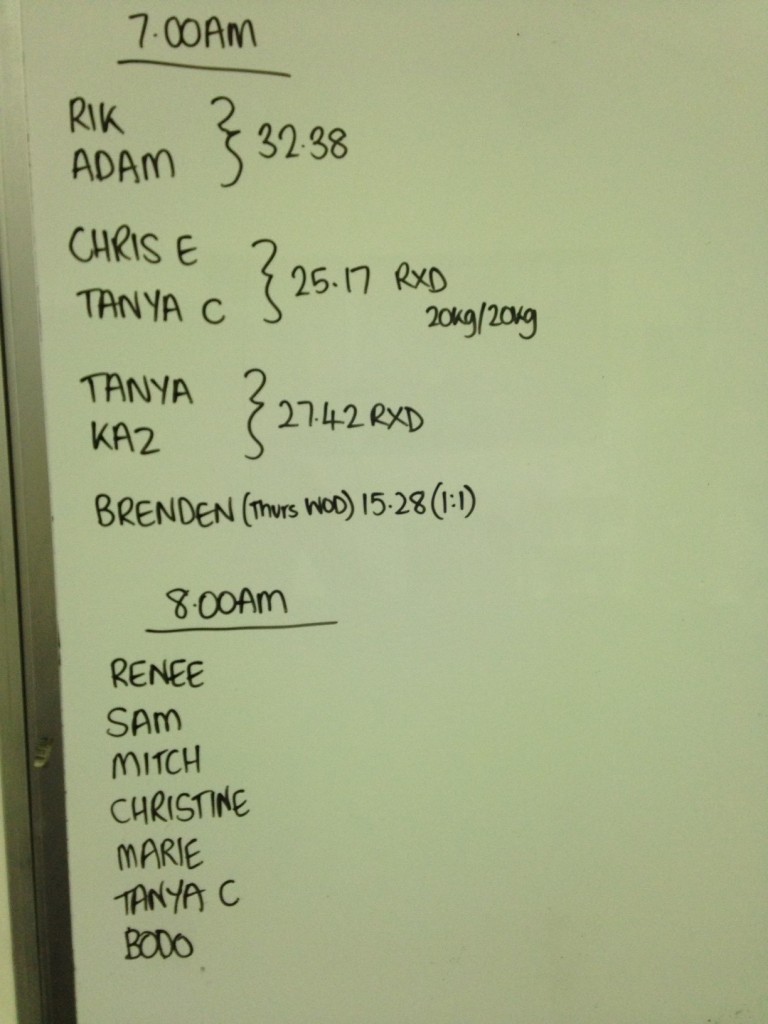 7.00AM
RIK
ADAM } 32.38
CHRIS E
TANYA C } 25.17 RXD
20kg/20kg
TANYA
KAZ } 27.42 RXD
BRENDEN (Thurs WOD) 15.28 (1:1)
8.00AM
RENEE
SAM
MITCH
CHRISTINE
MARIE
TANYA C
BODO